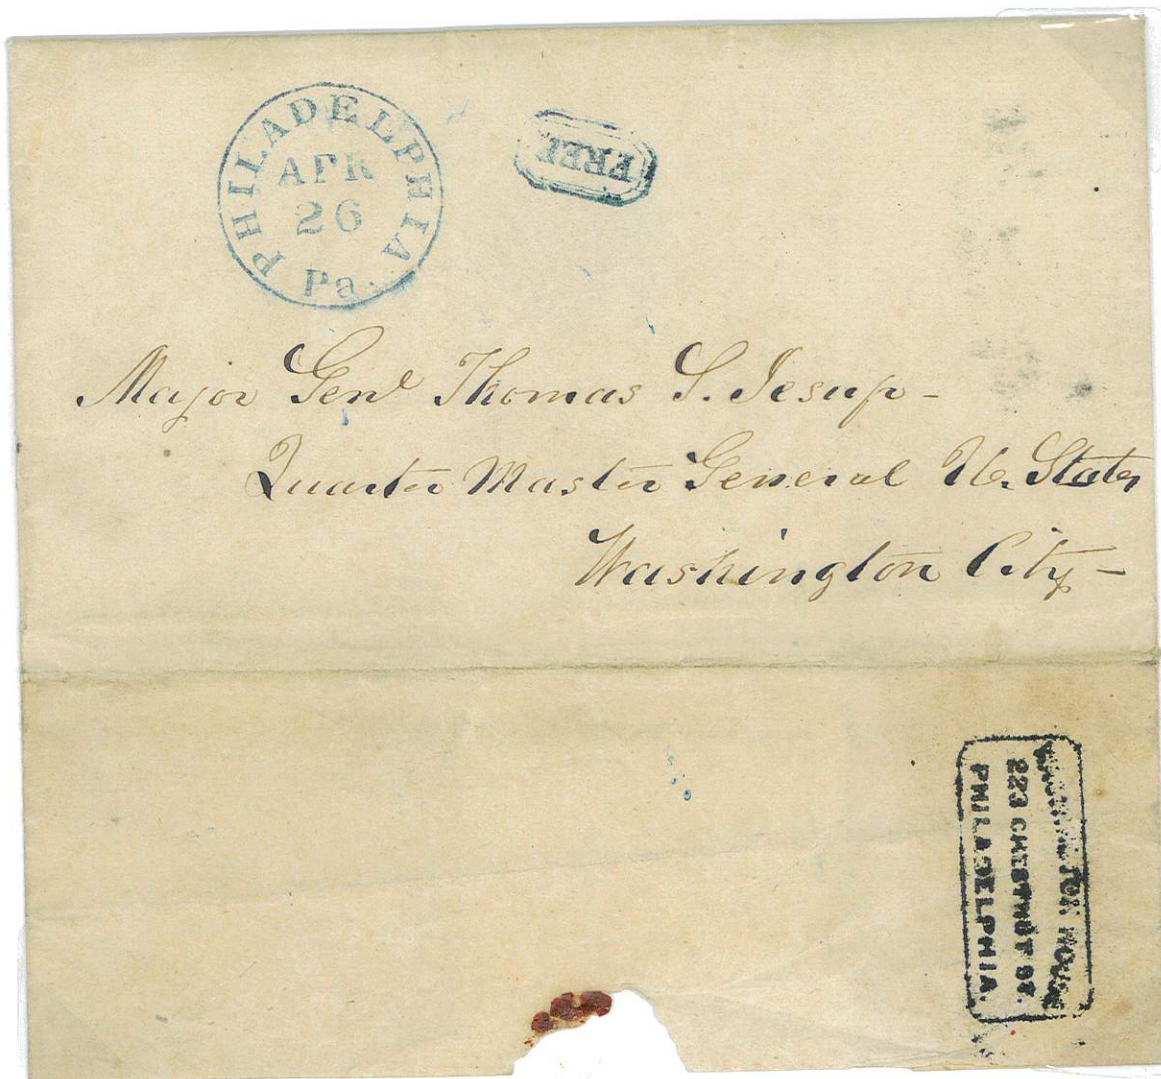 PHILADELPHIA Pa.
APR
26
FREE
Major Genl Thomas S. Jesup -
Quarter Master General U. States
Washington City -
WASHINGTON HOUSE
223 CHESTNUT ST.
PHILADELPHIA.